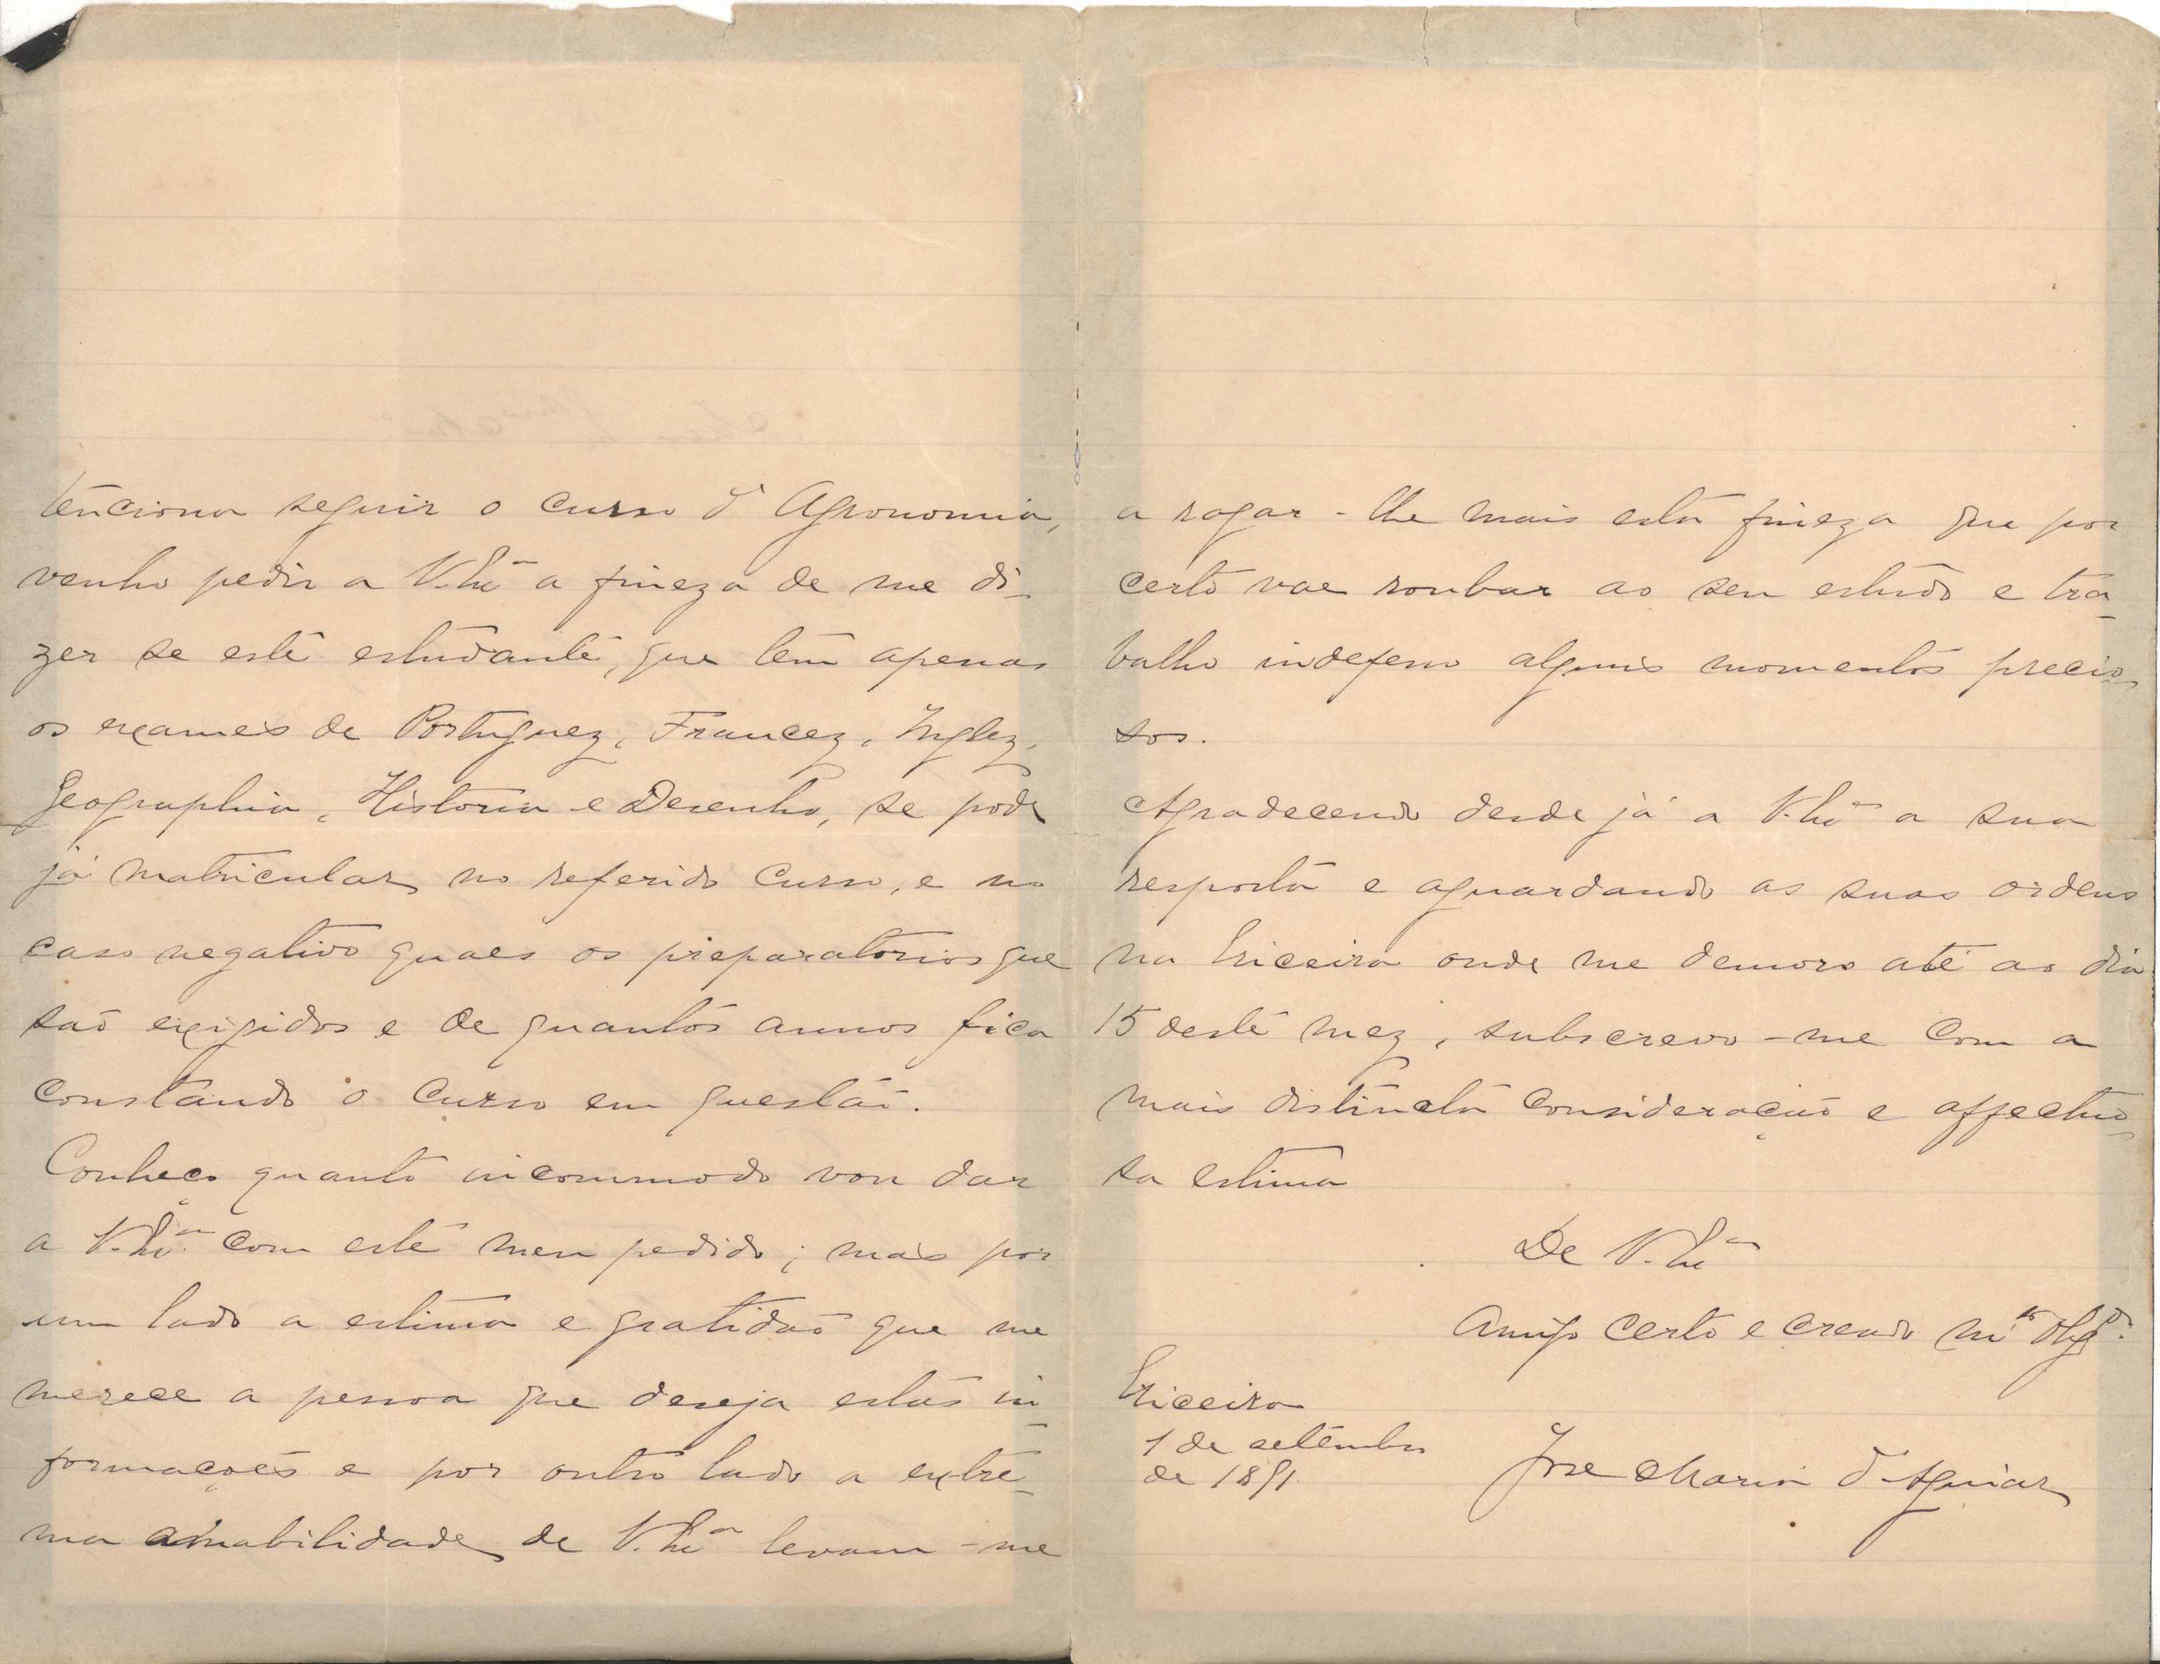 tenciona seguir o curso d'Agronomia,
venho pedir a V. Exª a fineza de me di-
zer se este estudante, que tem apenas
os exames de Portuguez, Francez, Inglez,
Geographia, Historia e Desenho, se pode
já matricular no referido curso, e no
caso negativo quaes os preparatorios que
são exigidos e de quantos annos fica
constando o curso em questão.
Conheço quanto incommodo vou dar
a V. Exª com este meu pedido; mas por
um lado a estima e gratidão que me
merece a pessoa que deseja estas in-
formações e por outro lado a extre-
ma amabilidade de V. Exª levam-me
a rogar-lhe mais esta fineza que por
certo vae roubar ao seu estudo e tra-
balho indefeso alguns momentos precio-
sos.
Agradecendo desde já a V. Exª a sua
resposta e aguardando as suas ordens
na Ericeira onde me demoro até ao dia
15 deste mez, subscrevo-me com a
mais distincta consideração e affectuo-
sa estima
De V. Exª
Amigo certo e creado mto obgdo.
Ericeira
1 de setembro
de 1891.
José Maria d'Aguiar